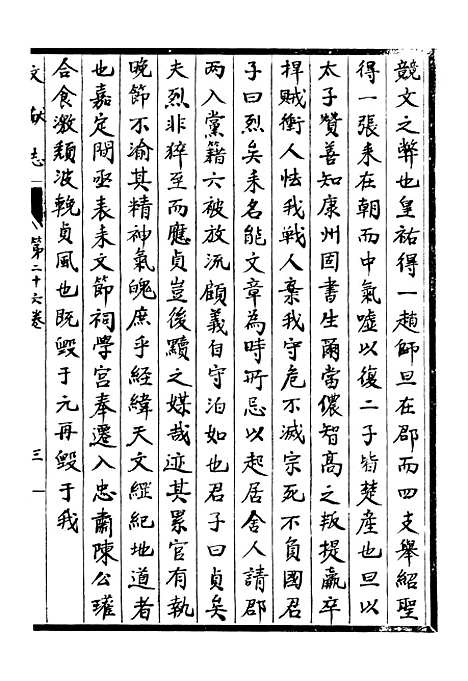 競文之弊也皇祐得一趙師旦在郡而四支舉紹聖
得一張耒在朝而中氣噓以復二子皆楚產也旦以
太子贊善知康州固書生爾當儂智高之叛提羸卒
捍賊衝人怯我戰人棄我守危不滅宗死不負國君
子曰烈矣耒名能文章為時所忌以起居舍人請郡
两入黨籍六被放流顧義自守泊如也君子曰貞矣
夫烈非猝至而應貞豈後黷之媒哉迹其累官有執
晚節不渝其精神氣魄庶乎經緯天文縱紀地道者
也嘉定間亟表耒文節祠學宮奉遷入忠肅陳公瓘
合食激頹波輓貞風也既毀于元再毀于我
文獻志
第二十六卷
三